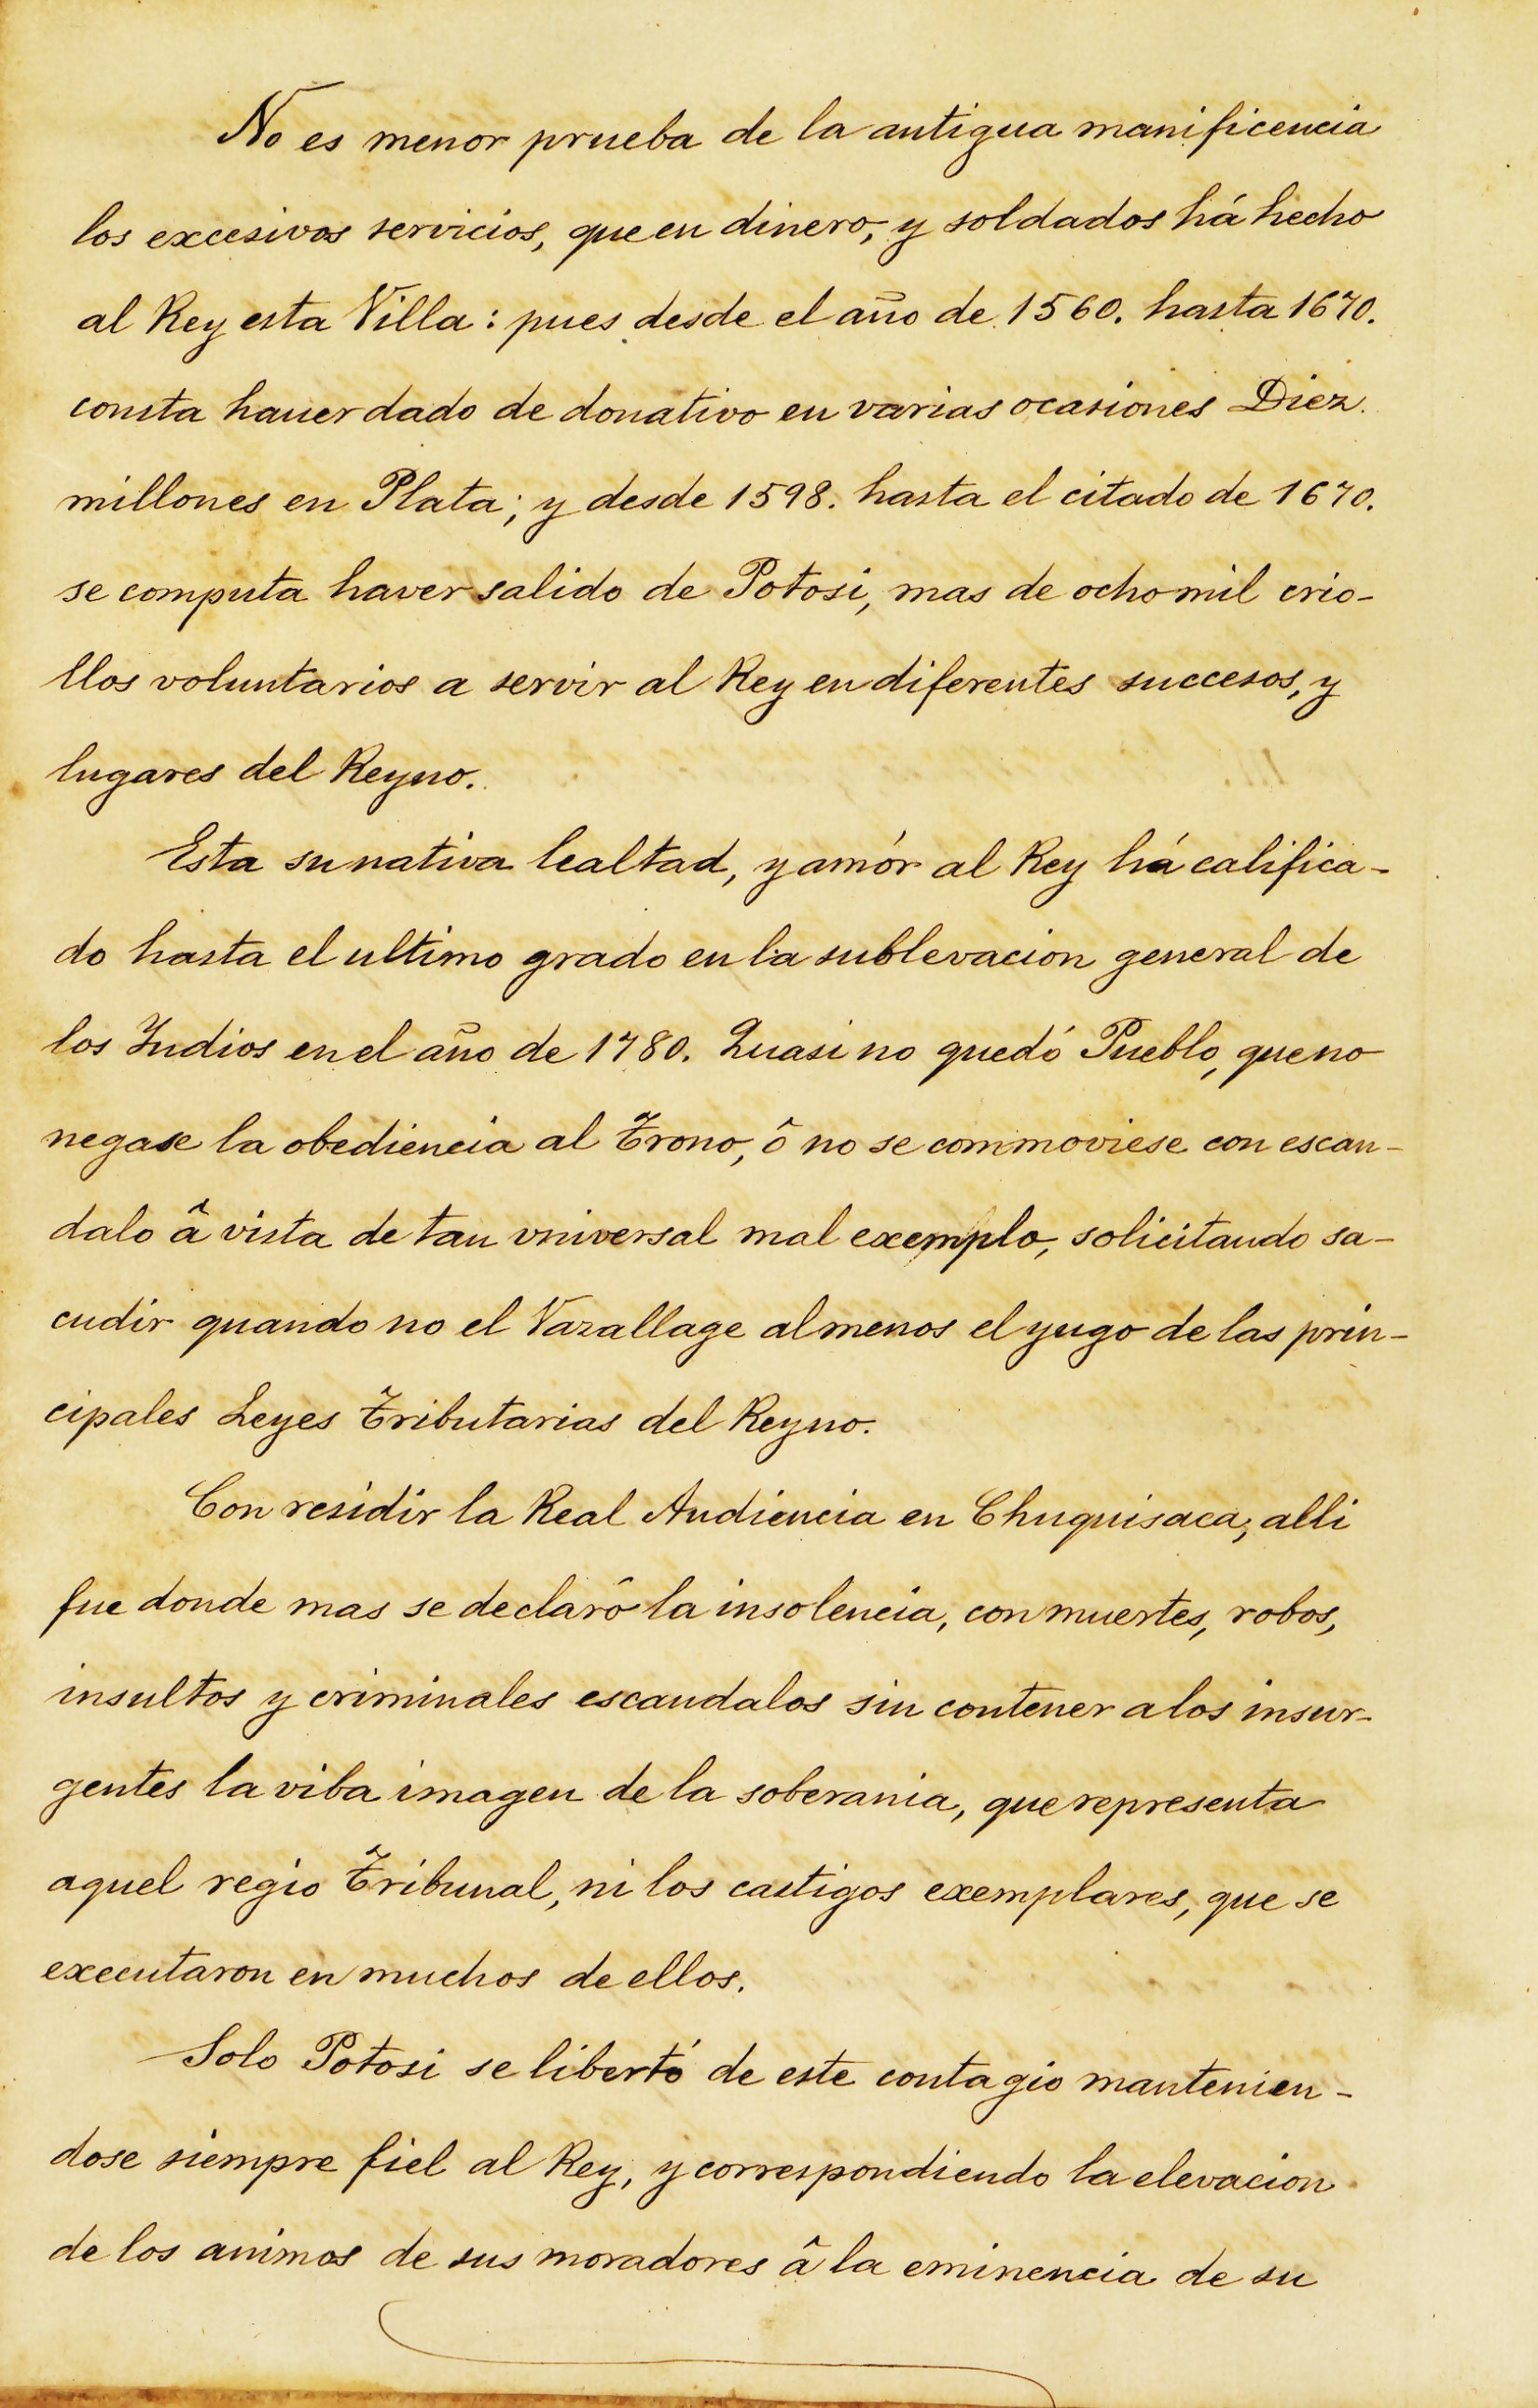 No es menor prueba de la antigua manificencia
los excesivos servicios, que en dinero, y soldados há hecho
al Rey esta Villa: pues desde el año de 1560. hasta 1670.
consta hauer dado de donativo en varias ocasiones Diez
millones en Plata; y desde 1598. hasta el citado de 1670.
se computa haver salido de Potosi, mas de ocho mil crio-
llos voluntarios a servir al Rey en diferentes succesos, y
lugares del Reyno.
Esta su nativa lealtad, y amór al Rey há califica-
do hasta el ultimo grado en la sublevacion general de
los Indios en el año de 1780. Quasi no quedó Pueblo, que no
negase la obediencia al Trono, ô no se commoviese con escan-
dalo â vista de tan vniversal mal exemplo, solicitando sa-
cudir quando no el Vazallage al menos el yugo de las prin-
cipales Leyes Tributarias del Reyno.
Con residir la Real Audiencia en Chuquisaca, alli
fue donde mas se declarô la insolencia, con muertes, robos,
insultos y criminales escandalos sin contener a los insur-
gentes la viba imagen de la soberania, que representa
aquel regio Tribunal, ni los castigos exemplares, que se
executaron en muchos de ellos.
Solo Potosi se libertó de este contagio mantenien-
dose siempre fiel al Rey, y correspondiendo la elevacion
de los animos de sus moradores â la eminencia de su